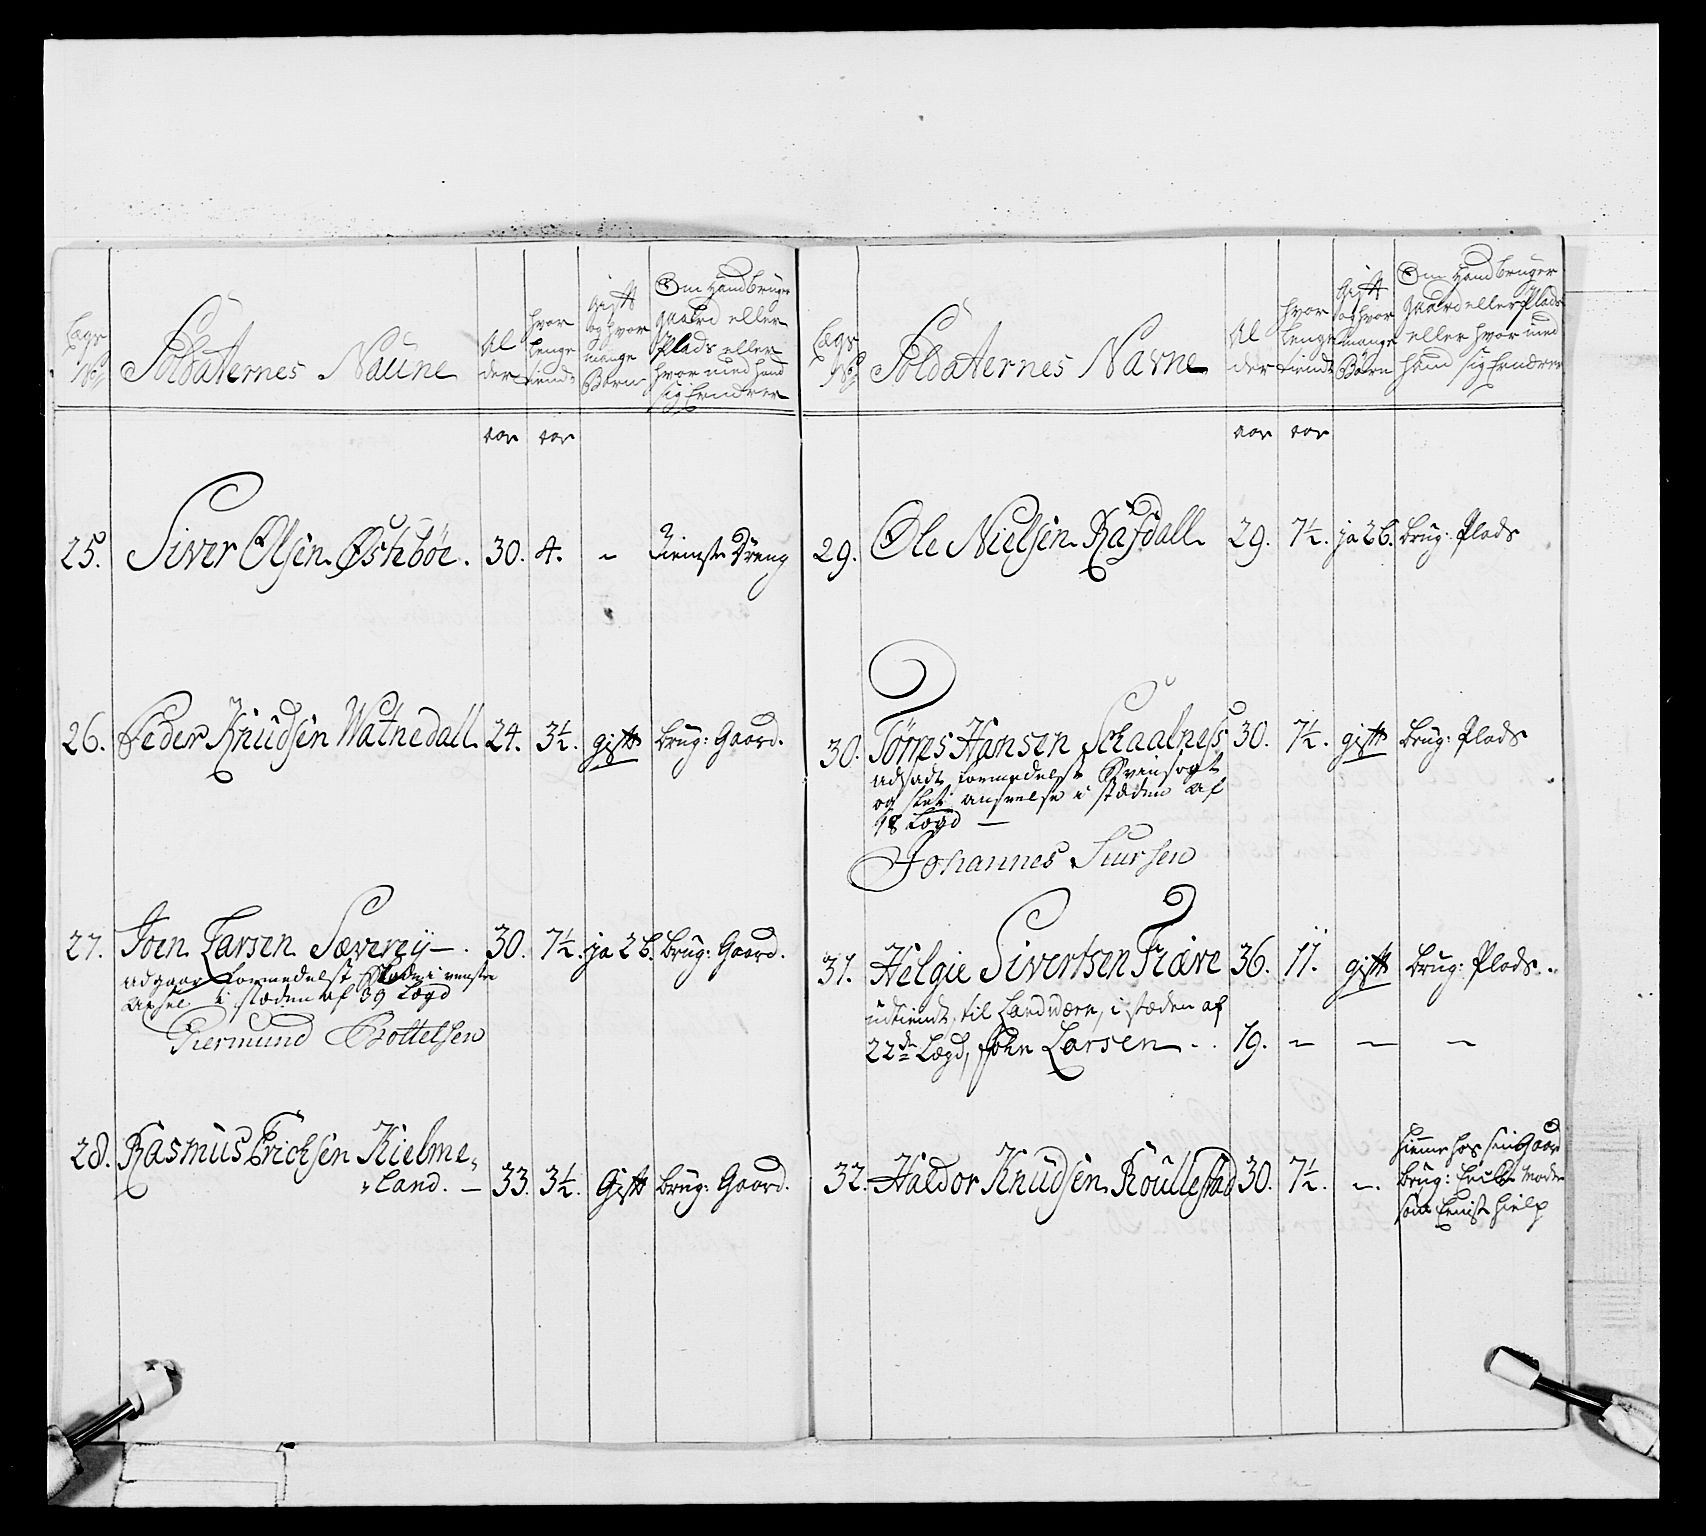 Lægs No
Soldaternes Naune
Al
der
hvor
lenge
tient
gift
og hvor
mange
Børn
Om Hand bruger
gaard eller
Plads eller
hvor med hand
sig Ernærer
aar aar
25. Siver Olsen Østebøe. 30. 4. - tieniste Dreng
26. Peder Knudsen Watnedall. 24. 3½. gift brug: Gaard.
27. Joen Larsen Sæverey-. 30. 7½. ja 2 b. brug: Gaard.
adgaar formedelst Skade i venstre
axsel i stæden af 39 Lægd
Giermund Bottelsen
28. Rasmus Erichsen Kielme-
land. - 33. 3½. Gift brug: Gaard.
Lægs No
Soldaternes Navne
Al
der
hvor
lenge
tient
Gift
og hvor
mange
Børn
Om Hand bruger
Gaard eller Plads
eller hvor med
hand sig Ernærer
aar aar
29. Ole Nielsen Rafdall 29. 7½. ja 2 b. brug: Plads
30. Tørres Hansen Schaalness 30. 7½. gift brug: Plads
adsadt formedelst Svinsogt
og slet anseelse i stæden af
18 Lægd -
Johannes Siursen
31. Helgie Sivertsen Fiære 36. 11. gift brug: Plads..
udtient, til Landværn, i stæden af
22de Lægd, John Larsen - . . 19. - - -
32. Haldor Knudsen Roullestad 30. 7½. -. hiemme hos sin Gaard
brug: Moder
som hielp